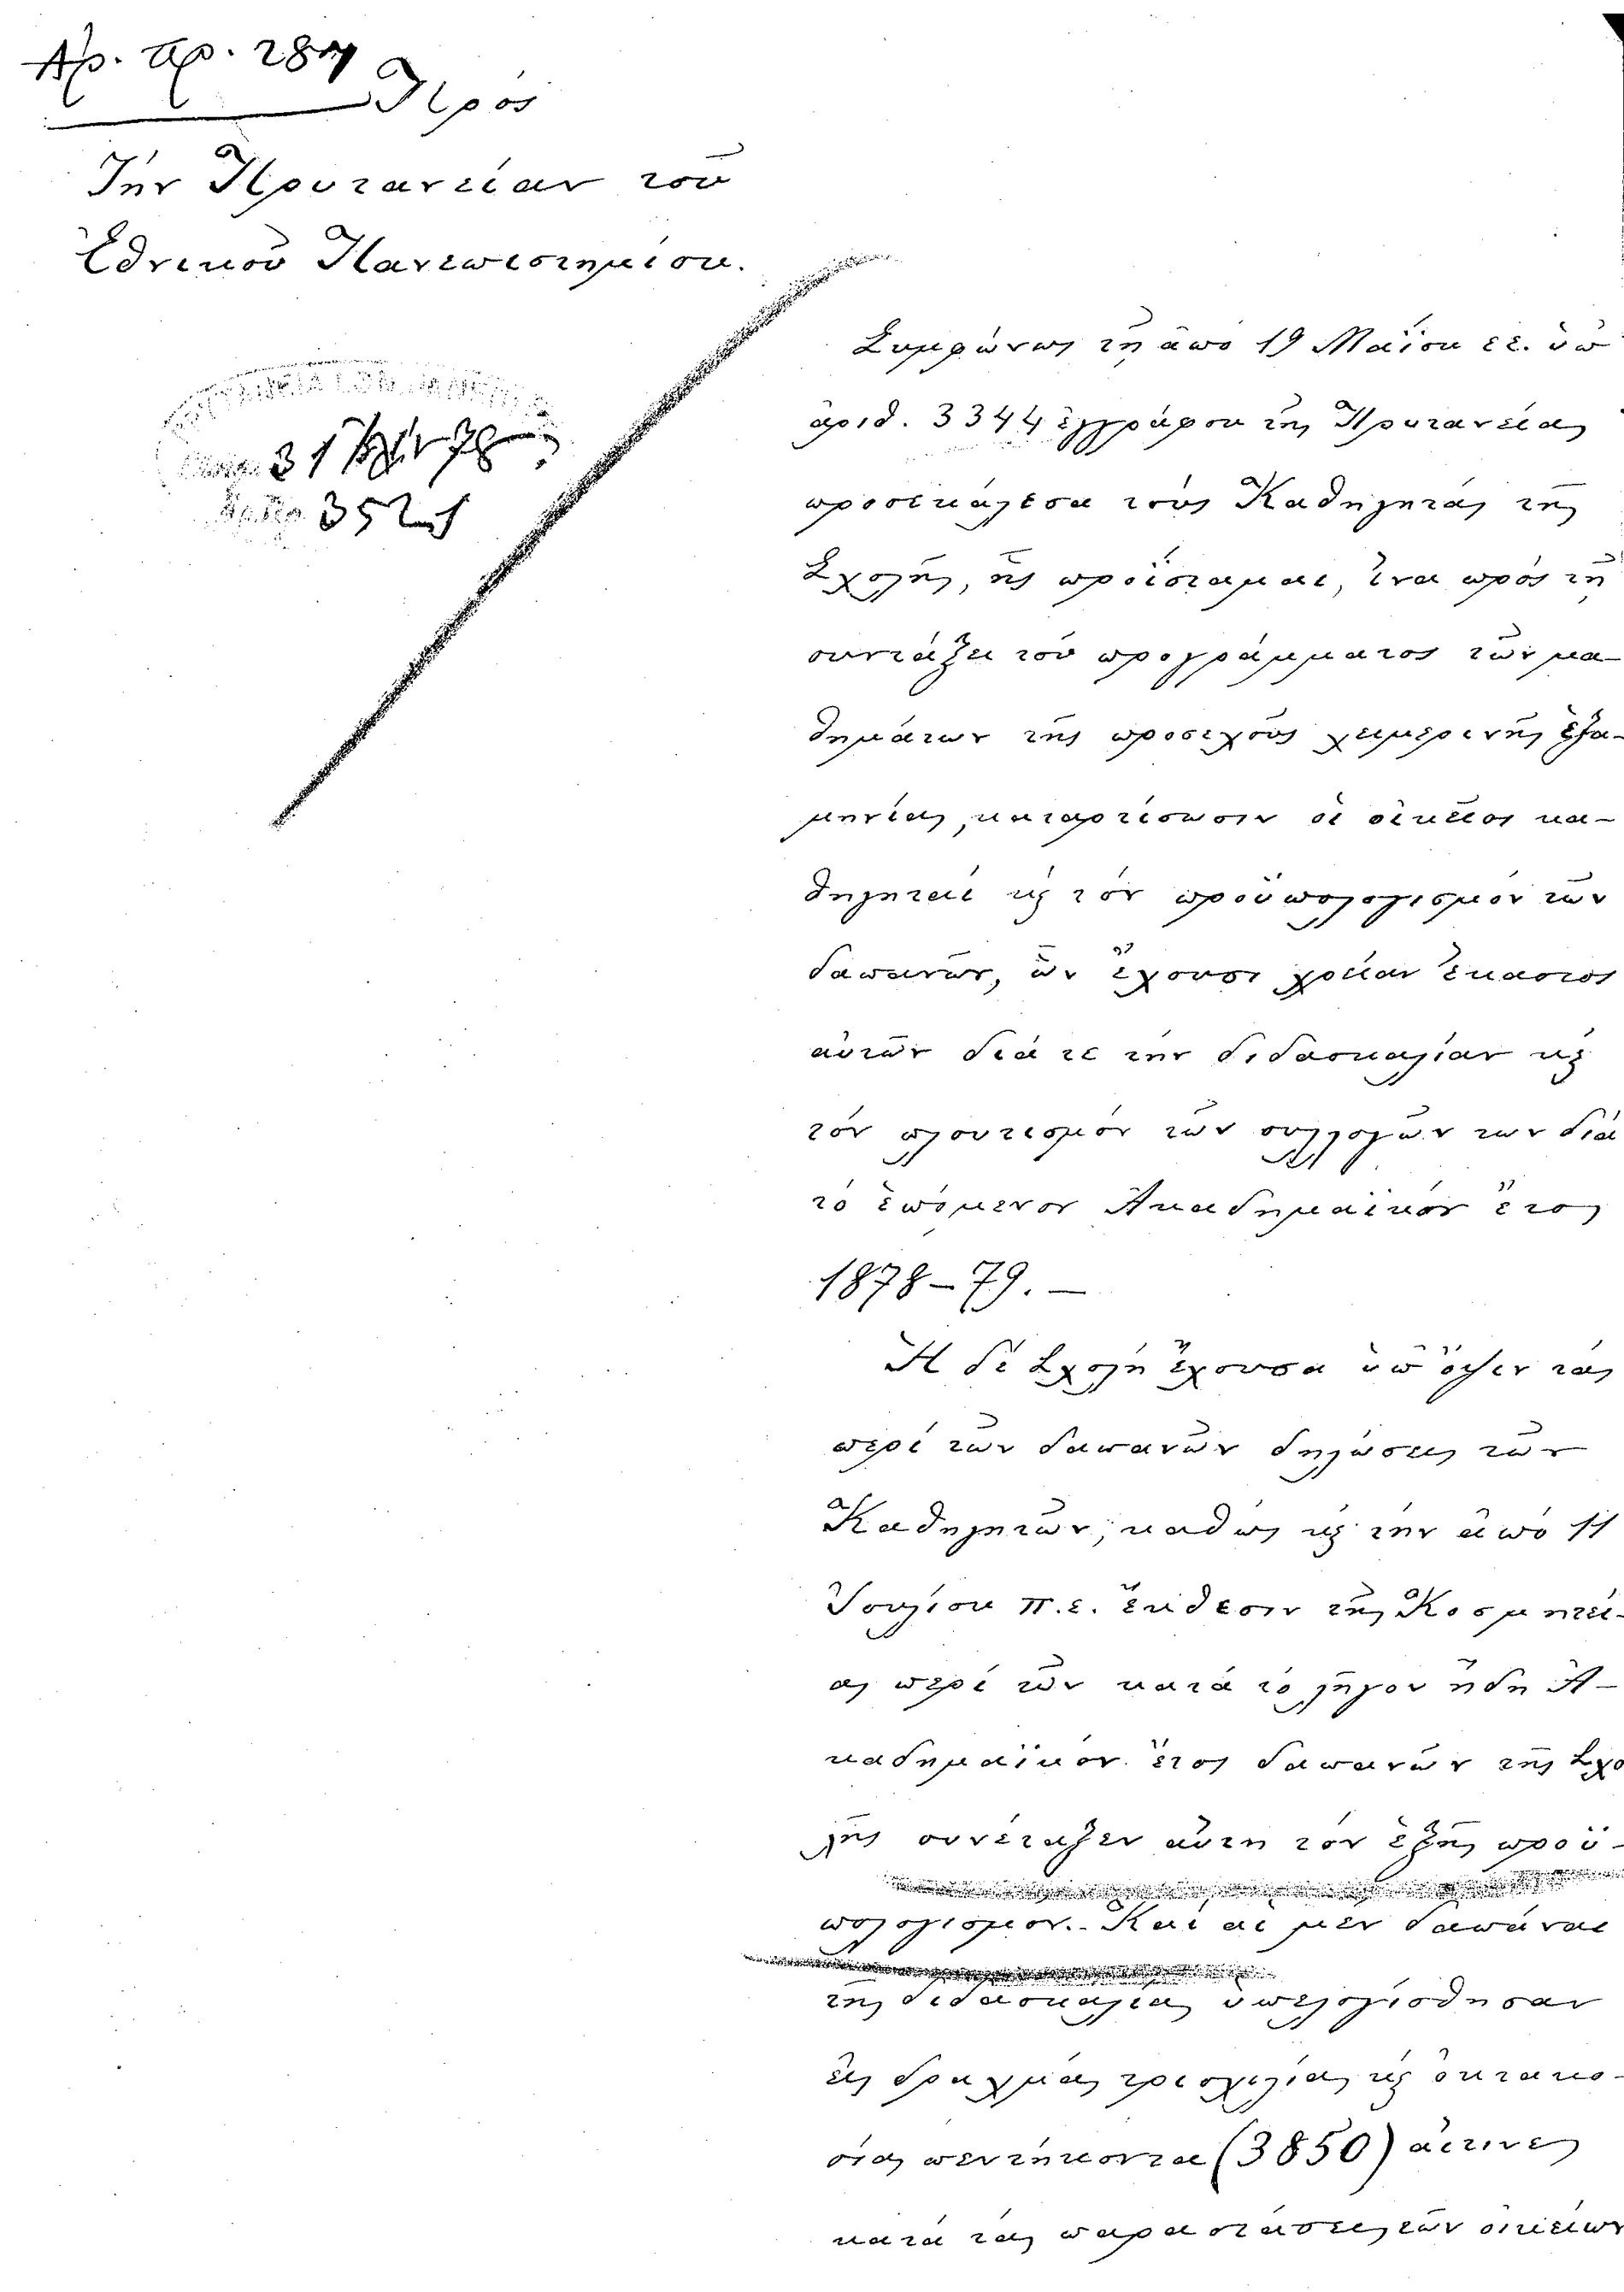 Ἀρ. πρ. 287
Πρὸς
Τὴν Πρυτανείαν τοῦ
Ἐθνικοῦ Πανεπιστημίου.
31 78
3521
Συμφώνως τῇ ἀπὸ 19 Μαΐου ἐ.ἔ. ὑπ'
ἀριθ. 3344 ἐγγράφου τῆς Πρυτανείας
προσεκάλεσα τοὺς Καθηγητὰς τῆς
Σχολῆς, ἧς προΐσταμαι, ἵνα πρὸς τῇ
συντάξει τοῦ προγράμματος τῶν μα-
θημάτων τῆς προσεχοῦς χειμερινῆς ἑξα-
μηνίας, καταρτίσωσιν οἱ οἰκεῖοι κα-
θηγηταὶ καὶ τὸν προϋπολογισμὸν τῶν
δαπανῶν, ὧν ἔχουσι χρείαν ἕκαστος
αὐτῶν διά τε τὴν διδασκαλίαν καὶ
τὸν πλουτισμὸν τῶν συλλογῶν των διὰ
τὸ ἑπόμενον Ἀκαδημαϊκὸν ἔτος
1878–79. —
Ἡ δὲ Σχολὴ ἔχουσα ὑπ' ὄψιν τὰς
περὶ τῶν δαπανῶν δηλώσεις τῶν
Καθηγητῶν, καθὼς καὶ τὴν ἀπὸ 11
Ἰουλίου π.ἔ. ἔκθεσιν τῆς Κοσμητεί-
ας περὶ τῶν κατὰ τὸ λῆγον ἤδη Ἀ-
καδημαϊκὸν ἔτος δαπανῶν τῆς Σχο
λῆς συνέταξεν αὐτὴ τὸν ἑξῆς προϋ-
πολογισμόν.- Καὶ αἱ μὲν δαπάναι
τῆς διδασκαλίας ὑπελογίσθησαν
εἰς δραχμὰς τρισχιλίας καὶ ὀκτακο-
σίας πεντήκοντα (3850) αἵτινες
κατὰ τὰς παραστάσεις τῶν οἰκείων